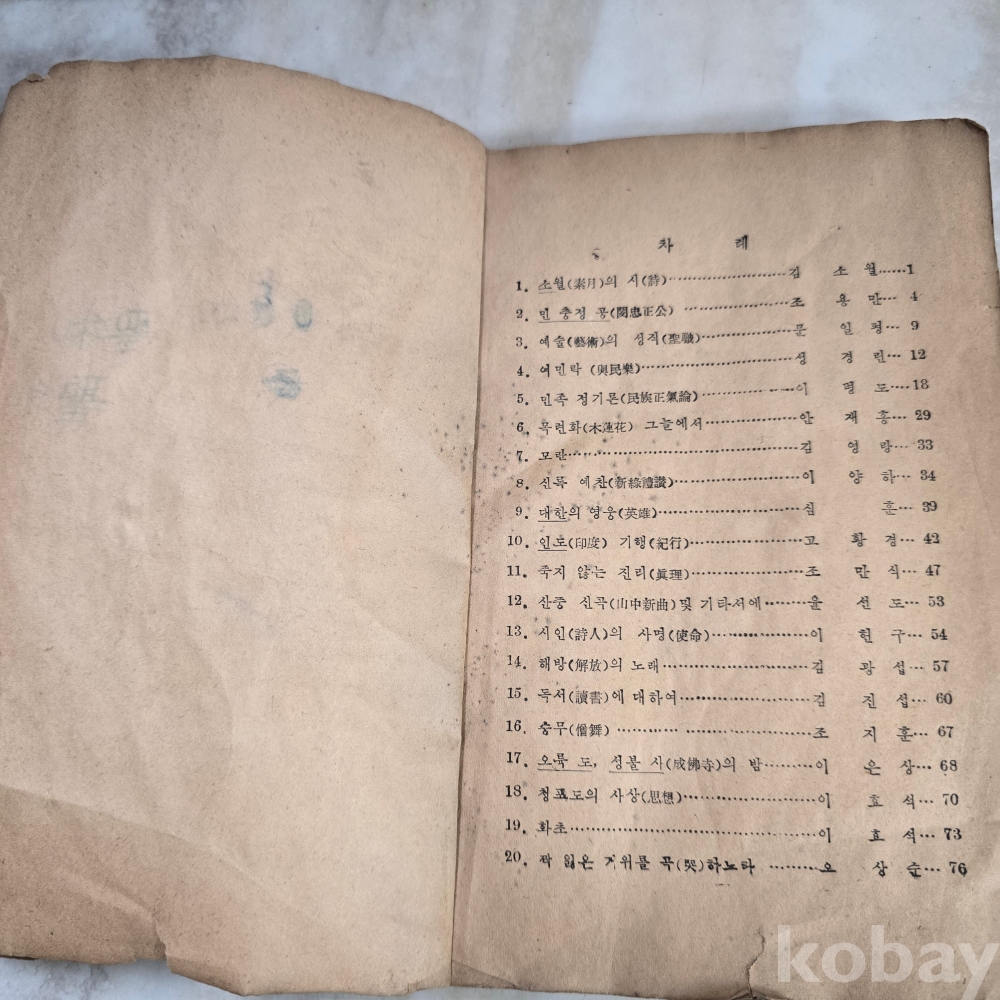 차 례
1. 소월(素月)의 시(詩)………………김 소 월……1
2. 민 충정 공(閔忠正公)………………조 용 만… 4
3. 예술(藝術)의 성직(聖職)………………문 일 평… 9
4. 여민락 (與民樂)………………성 경 린…12
5. 민족 정기론(民族正氣論)………………이 명 도…18
6. 목련화(木蓮花) 그늘에서………………안 재 홍…29
7. 모란………………김 영 랑…33
8. 신록 예찬(新綠禮讚)………………이 양 하…34
9. 대한의 영웅(英雄)………………심 훈…39
10. 인도(印度) 기행(紀行)………………고 황 경…42
11. 죽지 않는 진리(眞理)………………조 만 식…47
12. 산중 신곡(山中新曲)및 기타서에………윤 선 도…53
13. 시인(詩人)의 사명(使命)………………이 헌 구…54
14. 해방(解放)의 노래………………김 광 섭…57
15. 독서(讀書)에 대하여………………김 진 섭…60
16. 승무(僧舞) ………………조 지 훈…67
17. 오륙 도, 성불 사(成佛寺)의 밤………이 은 상…68
18. 청포도의 사상(思想)………………이 효 석…70
19. 화초………………이 효 석…73
20. 짝 잃은 거위를 곡(哭)하노라 ………오 상 순…76
kobay